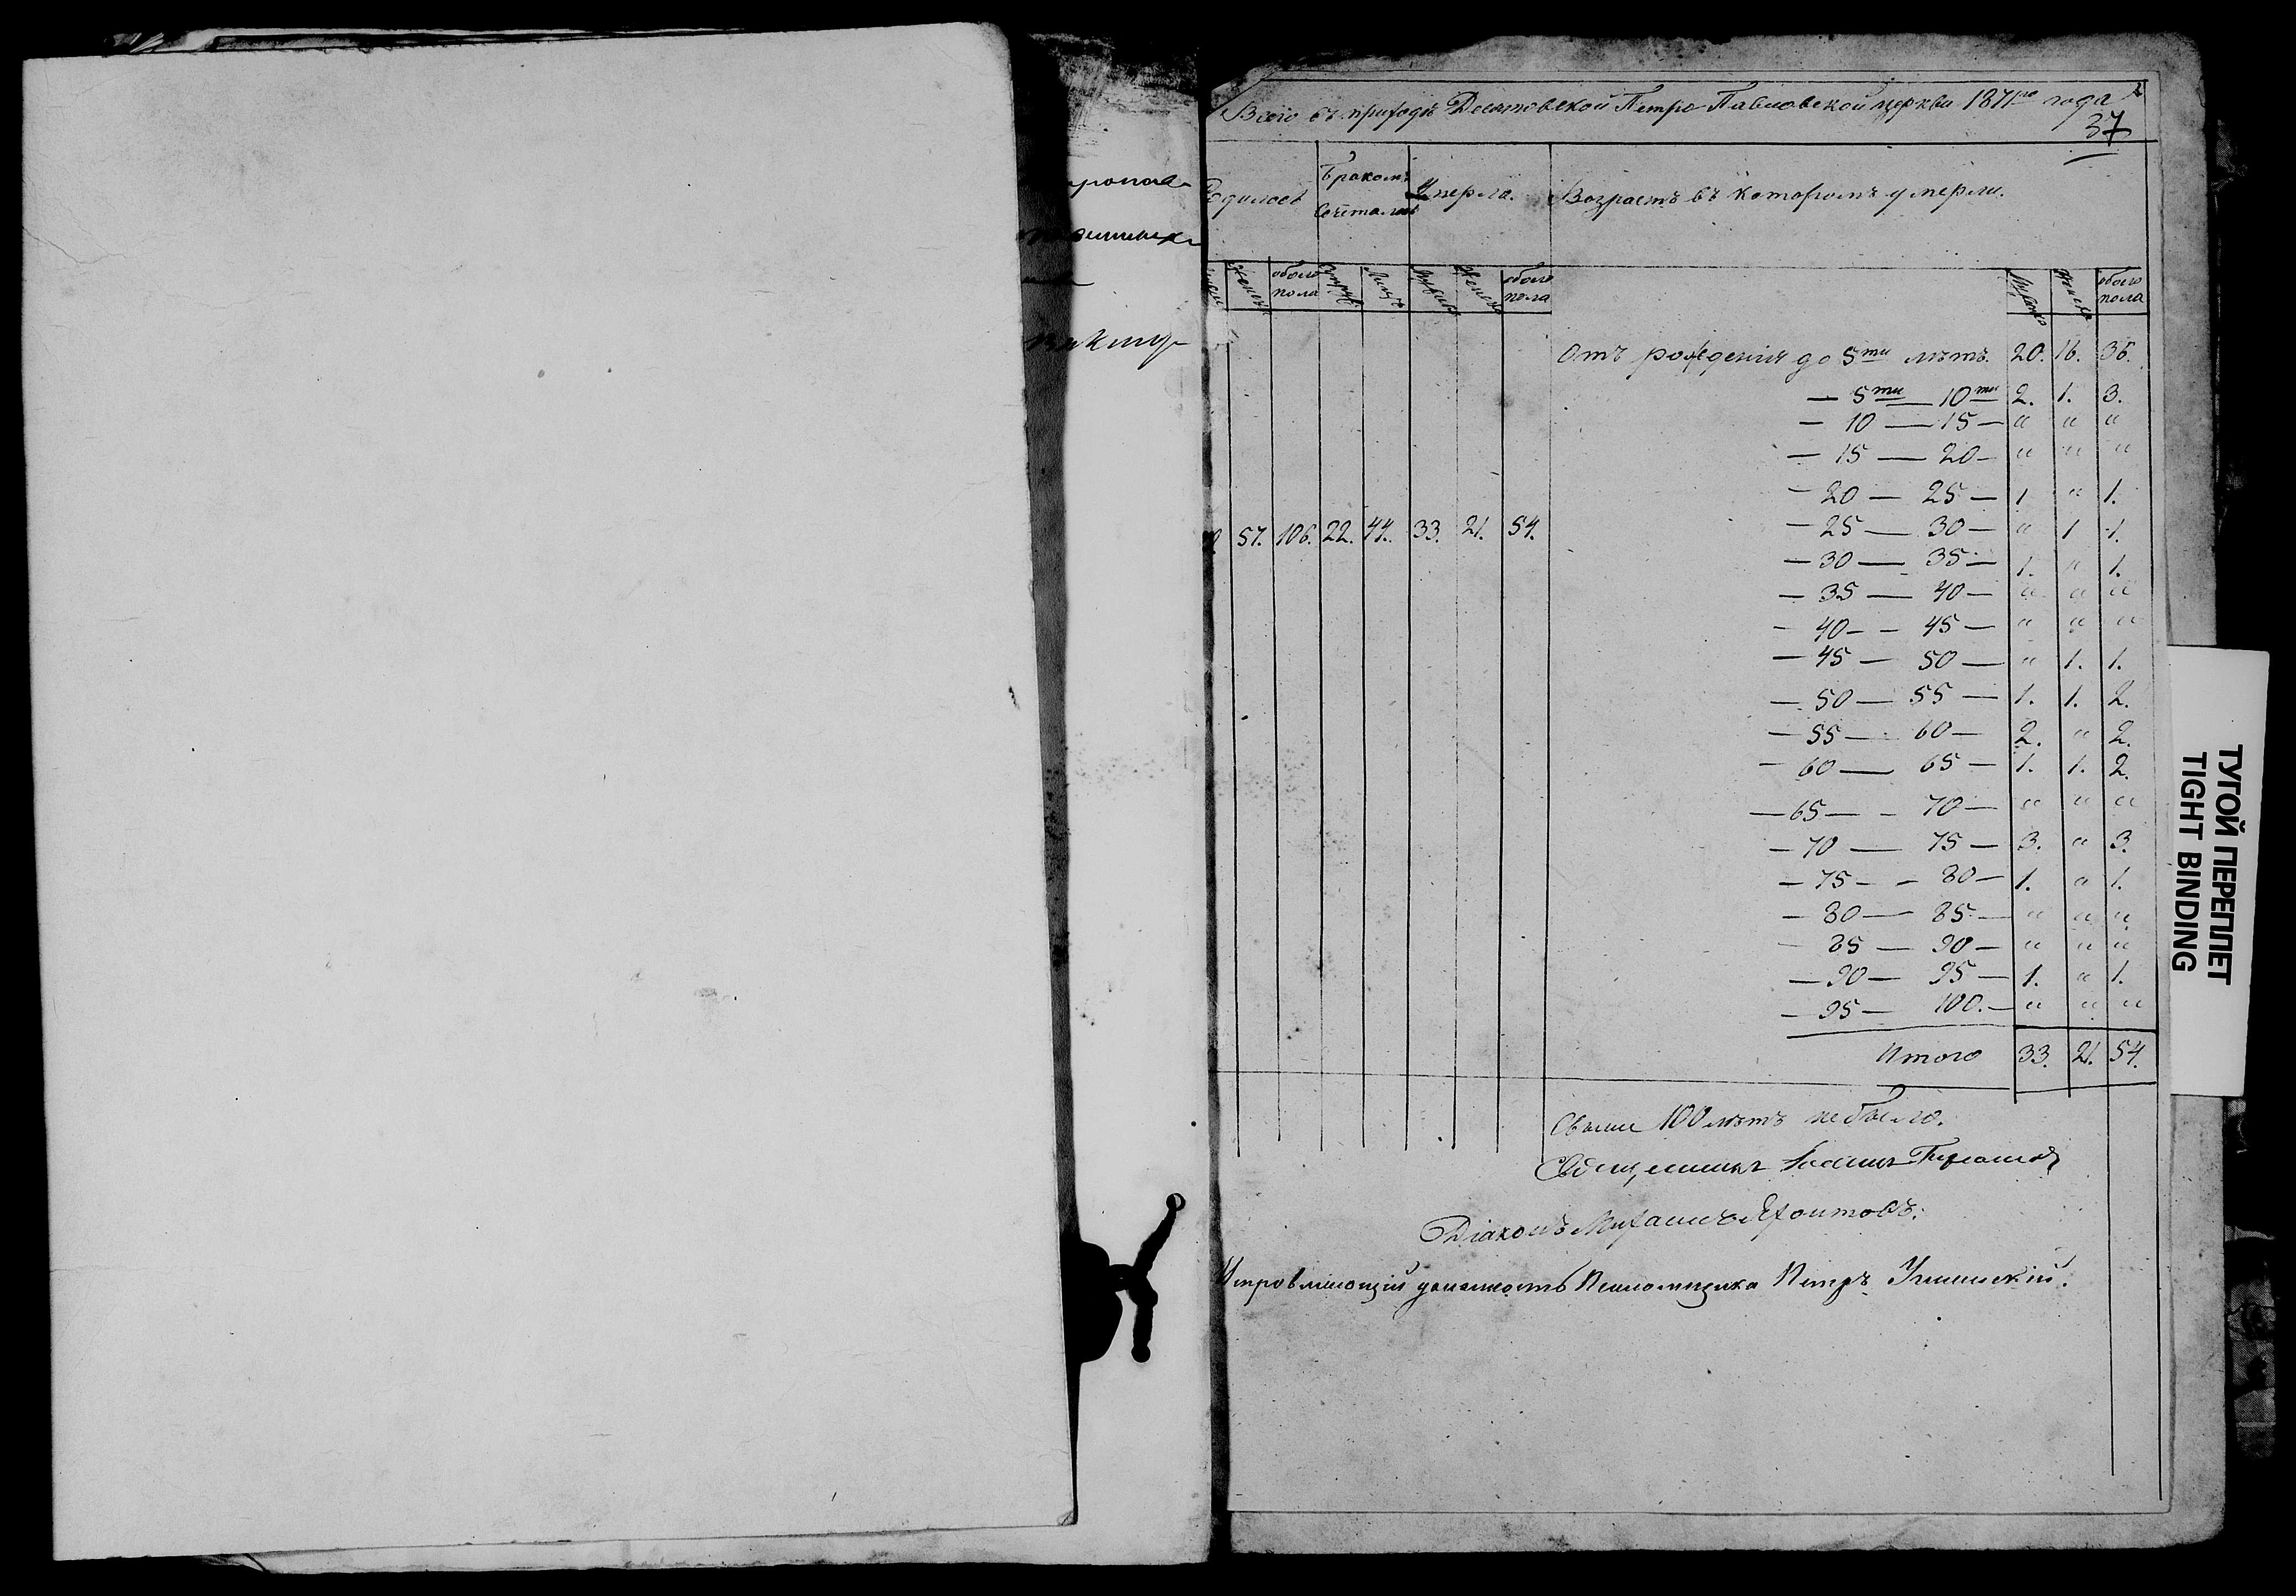 Всего въ приходѣ Десятовской Петро-Павловской церкви 1871го года
37
Родилось
Бракомъ сочеталось
Умерло.
Возрастъ въ которомъ умерли.
Женск. обоего пола Лицъ Женск обоего пола Женск обоего пола
Отъ рожденія до 5ти лѣтъ. 20. 16. 36.
— 5ти — 10ти 2. 1. 3.
— 10 — 15 — " " "
— 15 — 20 — " " "
— 20 — 25 — 1 " 1.
57. 106. 22. 44. 33. 21. 54.
— 25 — 30 — " 1 1.
— 30 — 35 — 1. " 1.
— 35 — 40 — " " "
— 40 — 45 — " " "
— 45 — 50 — " 1. 1.
— 50 — 55 — 1. 1. 2.
— 55 — 60 — 2. " 2.
— 60 — 65 — 1. 1. 2.
— 65 — 70 — " " "
— 70 — 75 — 3. " 3.
— 75 — 80 — 1. " 1.
— 80 — 85 — " " "
— 85 — 90 — " " "
— 90 — 95 — 1. " 1.
— 95 — 100. — " " "
Итого 33. 21. 54.
Свыше 100 лѣтъ не было.
Священникъ
Діаконъ Михаилъ
Исправляющій должность Псаломщика Петръ
ТУГОЙ ПЕРЕПЛЕТ
TIGHT BINDING